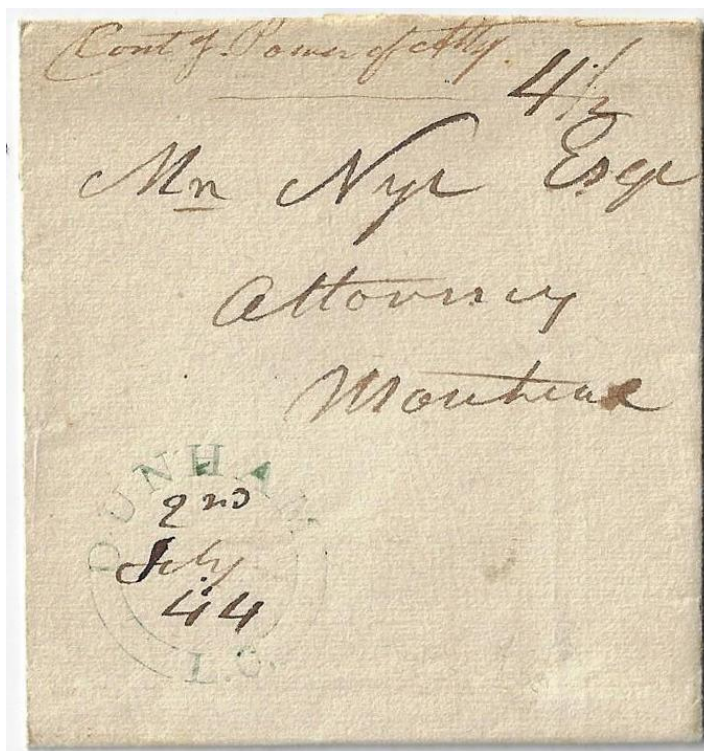 Cont g. Power of Atty.
4 1/2
Mr Nye Esqr
Attorney
Montreal
DUNHAM
2nd
July
44
L.C.